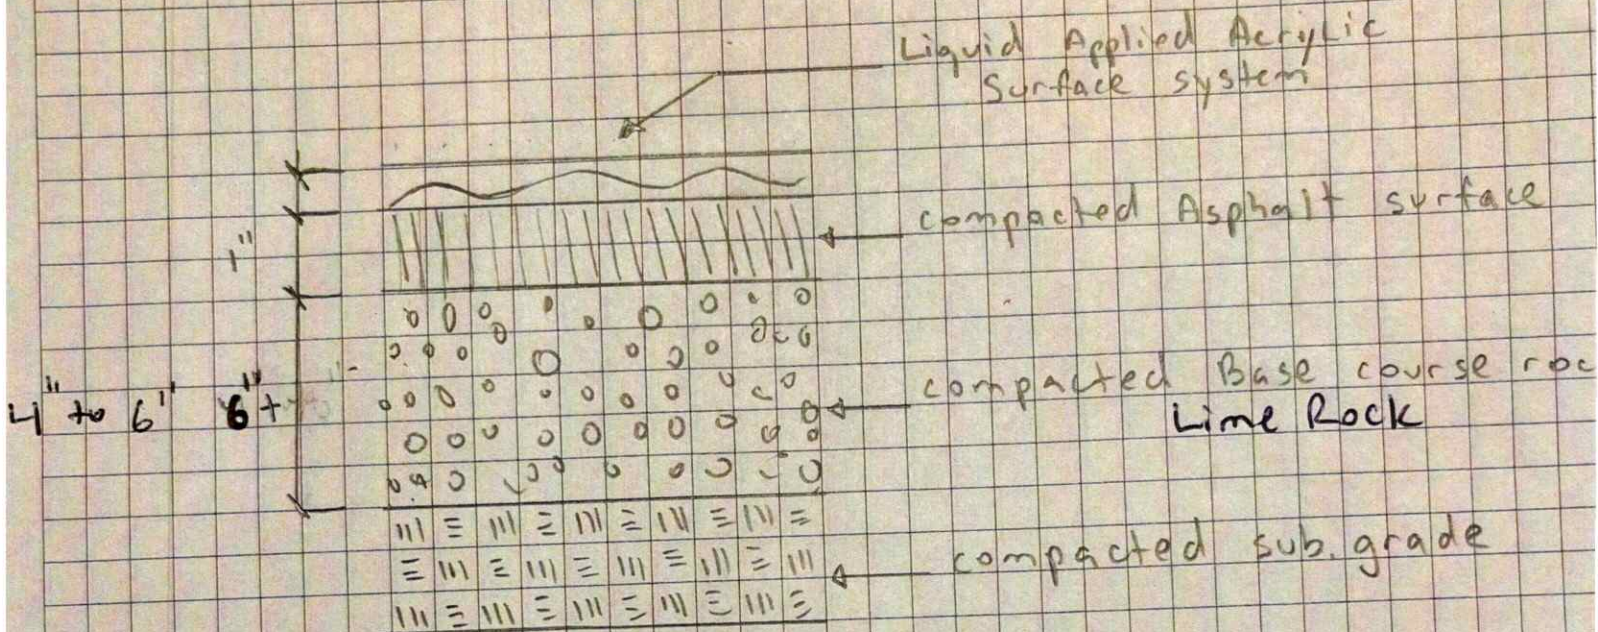 Liquid Applied Acrylic
Surface system
compacted Asphalt surface
1"
compacted Base course roc
Lime Rock
4" to 6" 6"+
compacted sub.grade